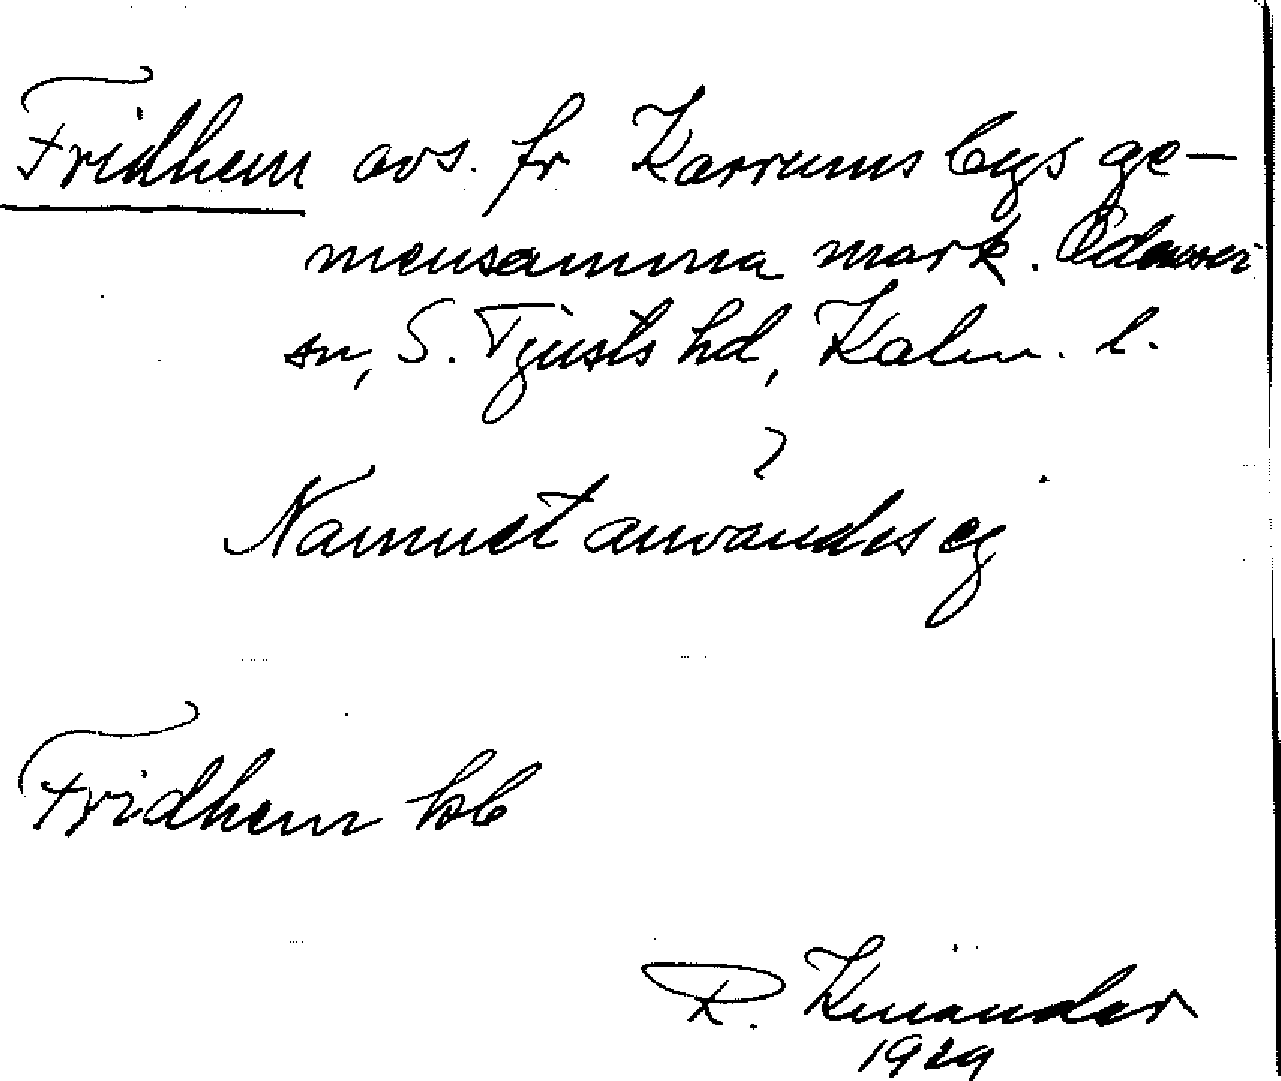 Fridhem avs. fr Karrums bys ge-
mensamma mark. Odensvi
sn, S. Tjusts hd, Kalm. l.
?
Namnet användes ej
Fridhem kb
R. Kinander
1929